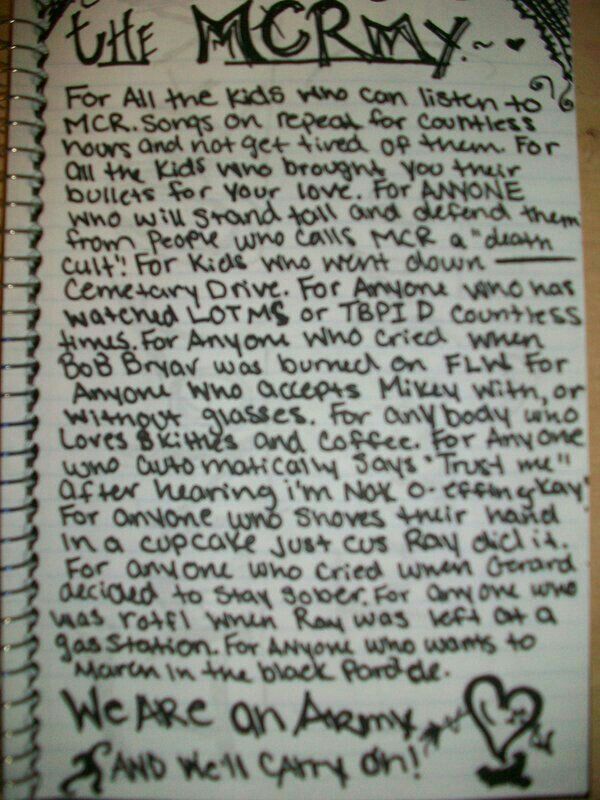 the MCRmy.~
For All the Kids who can listen to
MCR. Songs on repeat for countless
hours and not get tired of them. For
all the Kids who brought you their
bullets for your love. For ANYONE
who will stand tall and defend them
from people who calls MCR a "death
cult". For Kids who went down
Cemetary Drive. For Anyone who has
watched LOTMS or TBPID Countless
times. For Anyone who cried when
Bob Bryar was burned on FLW For
Anyone who accepts Mikey with, or
without glasses. For anybody who
Loves Skittles and Coffee. For Anyone
who automatically says "Trust me"
after hearing i'm Not O-effing Kay!
For anyone who shoves their hand
in a cupcake just cus Ray did it.
For anyone who cried when Gerard
decided to stay sober. For anyone who
was rotfl when Ray was left at a
gas station. For Anyone who wants to
March in the black Parade.
We ARE an ARmy
AND We'll CARRY on!